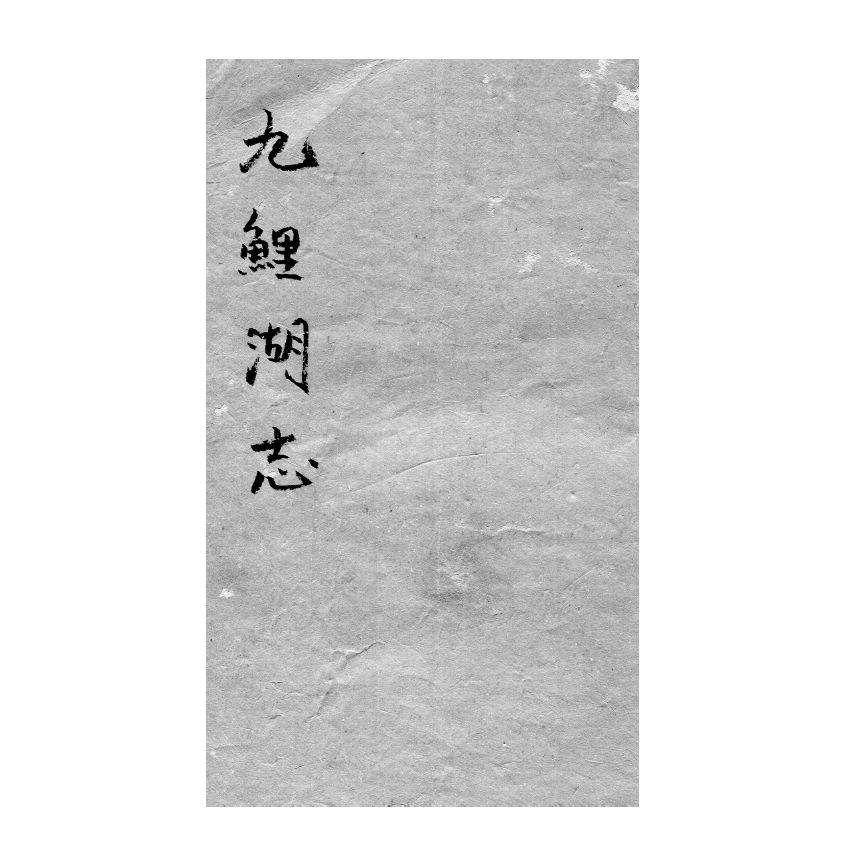 九鯉湖志